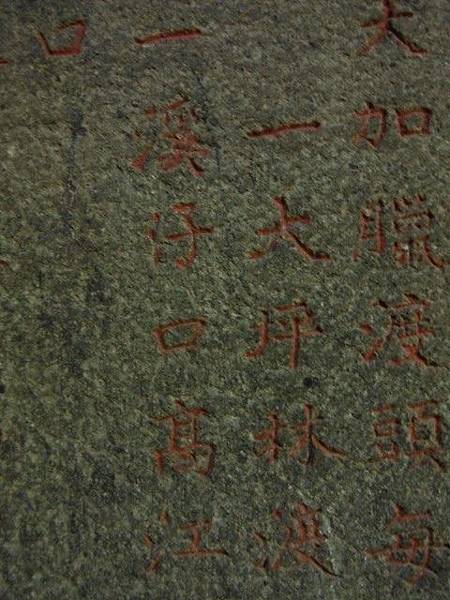 大加臘渡頭每
一大坪林渡
一溪仔口髙江
口